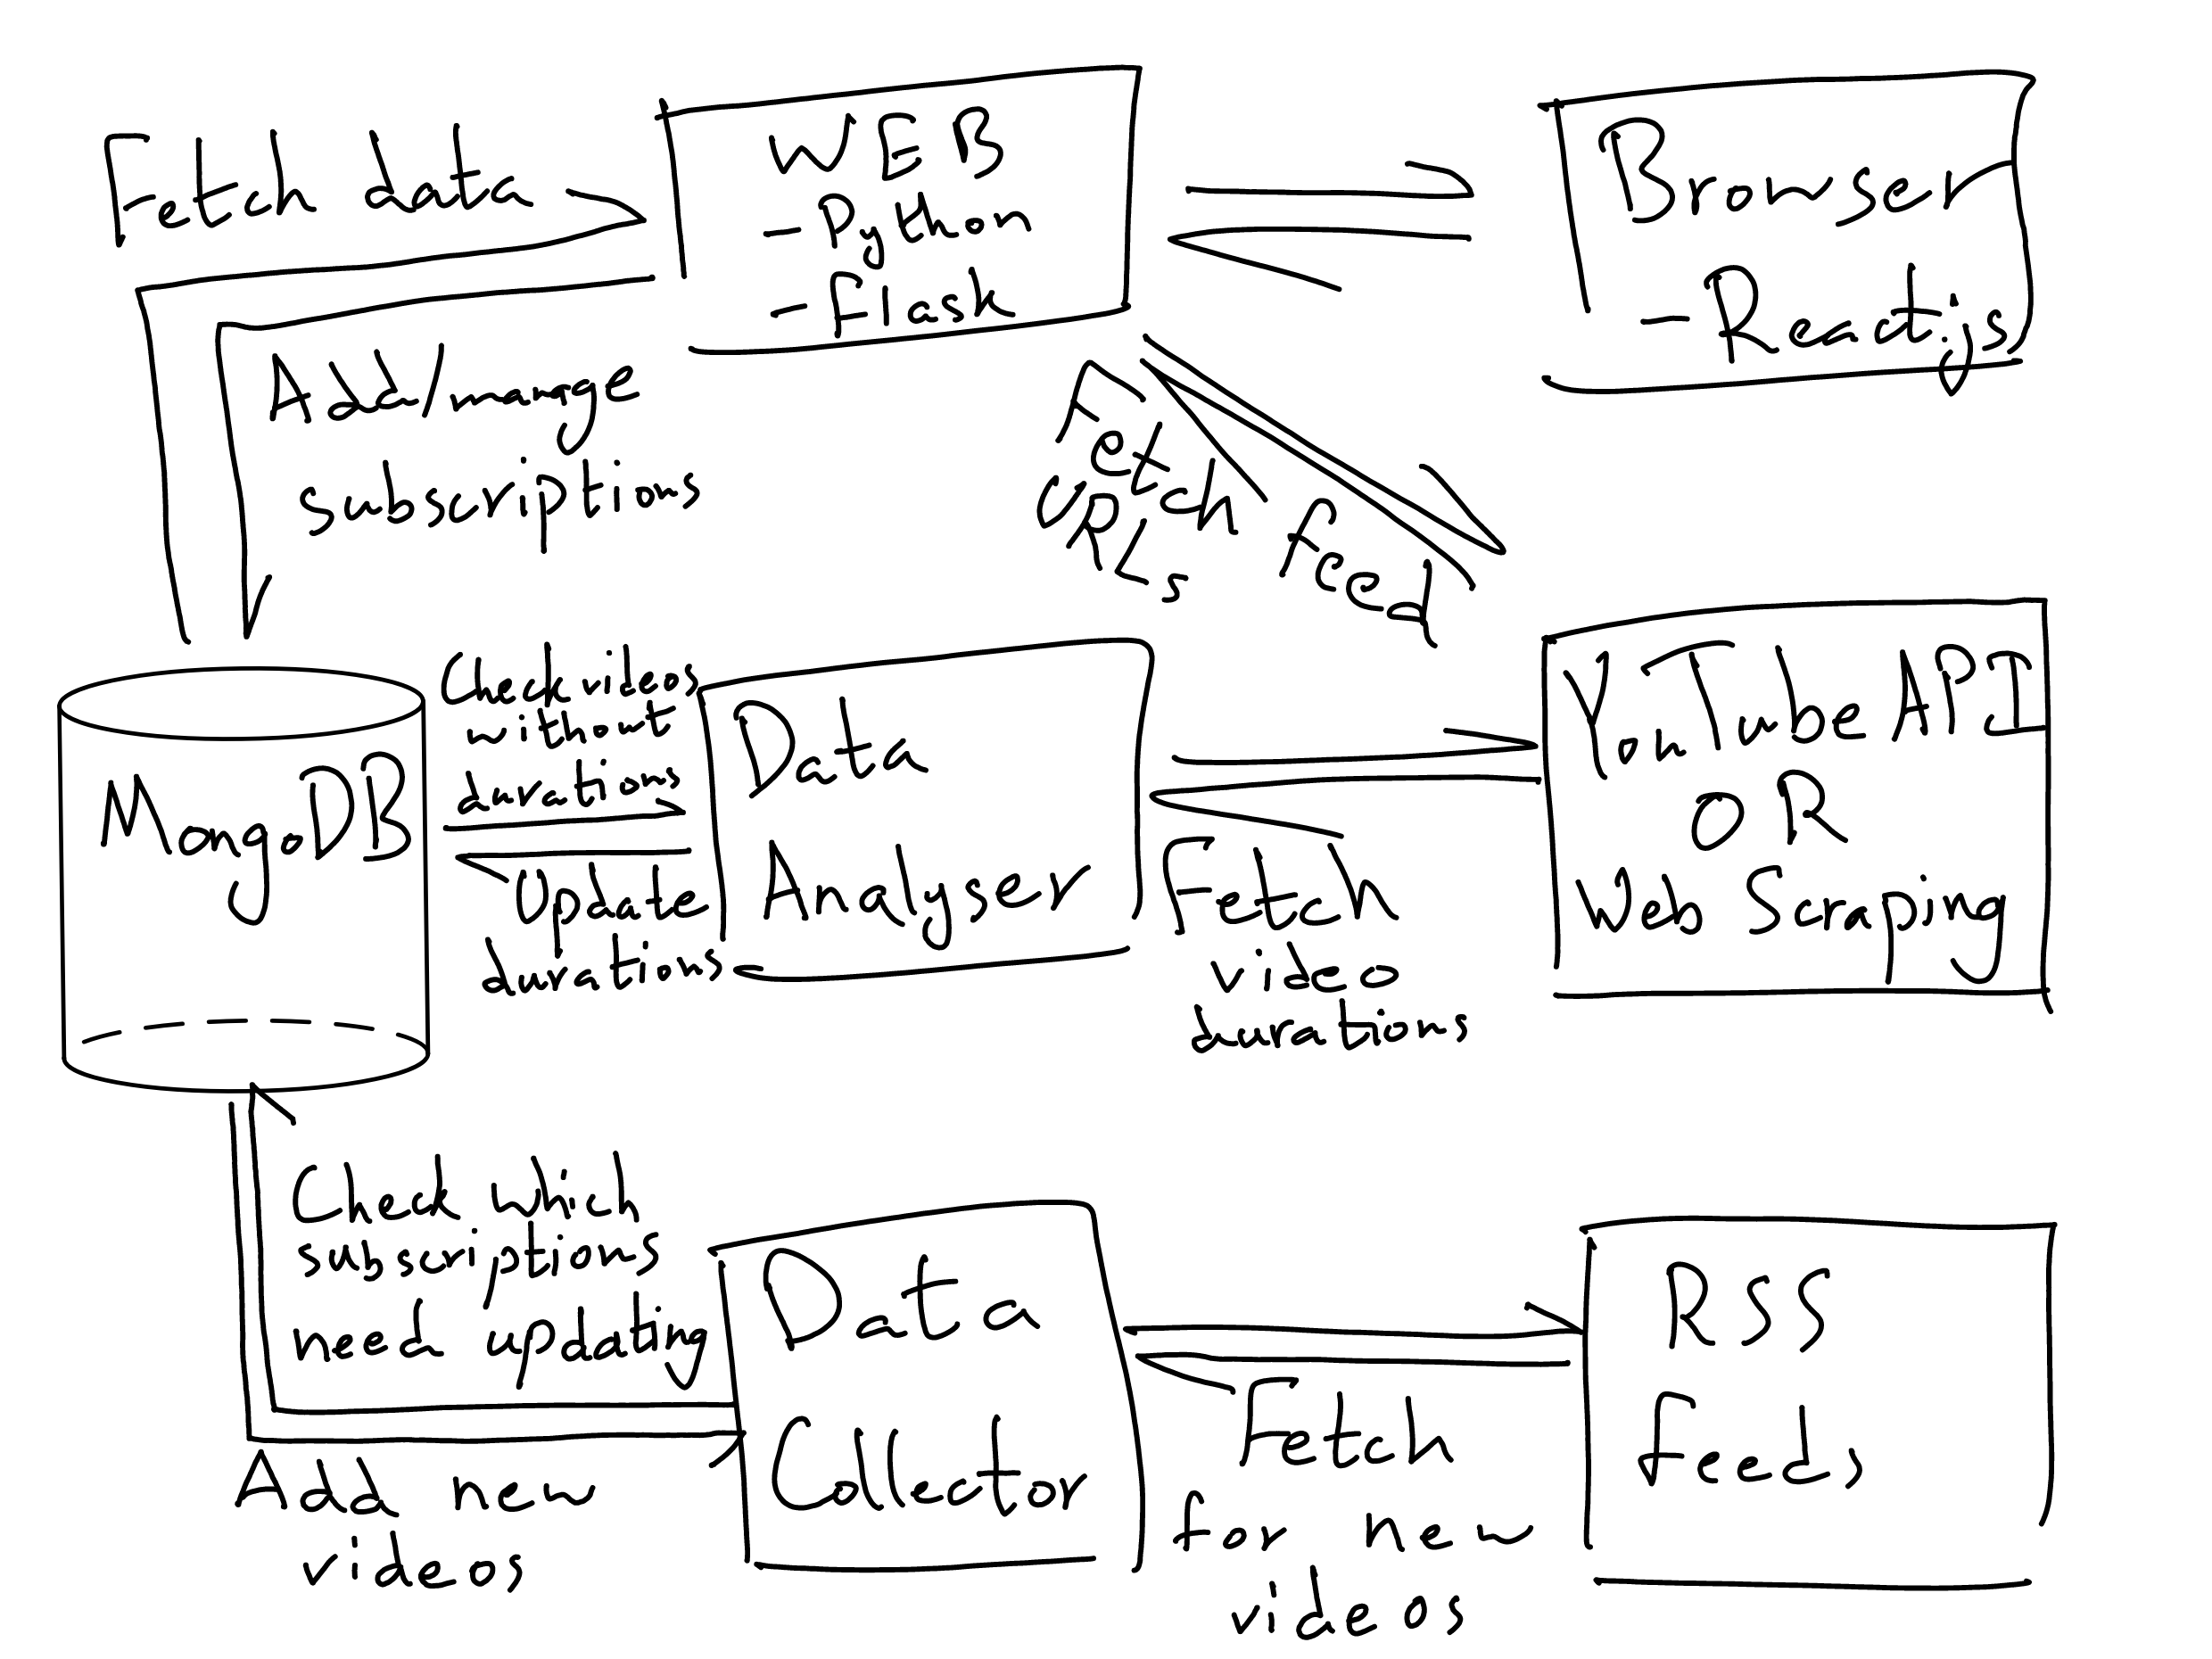 Fetch data
WEB
- Python
- Flask
Browser
- React.js
Add/mange
subscriptions
Fetch feed
URLs
MongoDB
Check videos
without
durations
Update
durations
Data
Analyser
Fetch
video
durations
YouTube API
OR
Web Scraping
Check which
subscriptions
need updating
Add new
videos
Data
Collector
Fetch
for new
videos
RSS
feeds